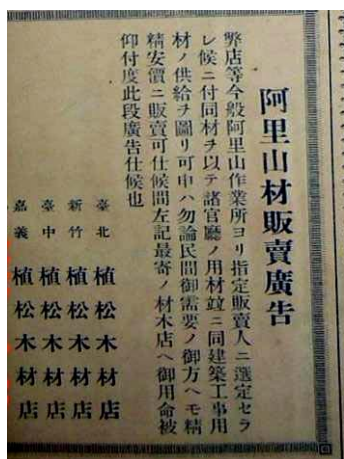 阿里山材販賣廣告
弊店等今般阿里山作業所ヨリ指定販賣人ニ選定セラ
レ候ニ付同材ヲ以テ諸官廳ノ用材竝ニ同建築工事用
材ノ供給ヲ圖リ可申ハ勿論民間御需要ノ御方ヘモ精
精安價ニ販賣可仕候間左記最寄ノ材木店ヘ御用命被
仰付度此段廣告仕候也
臺北 植松木材店
新竹 植松木材店
臺中 植松木材店
嘉義 植松木材店